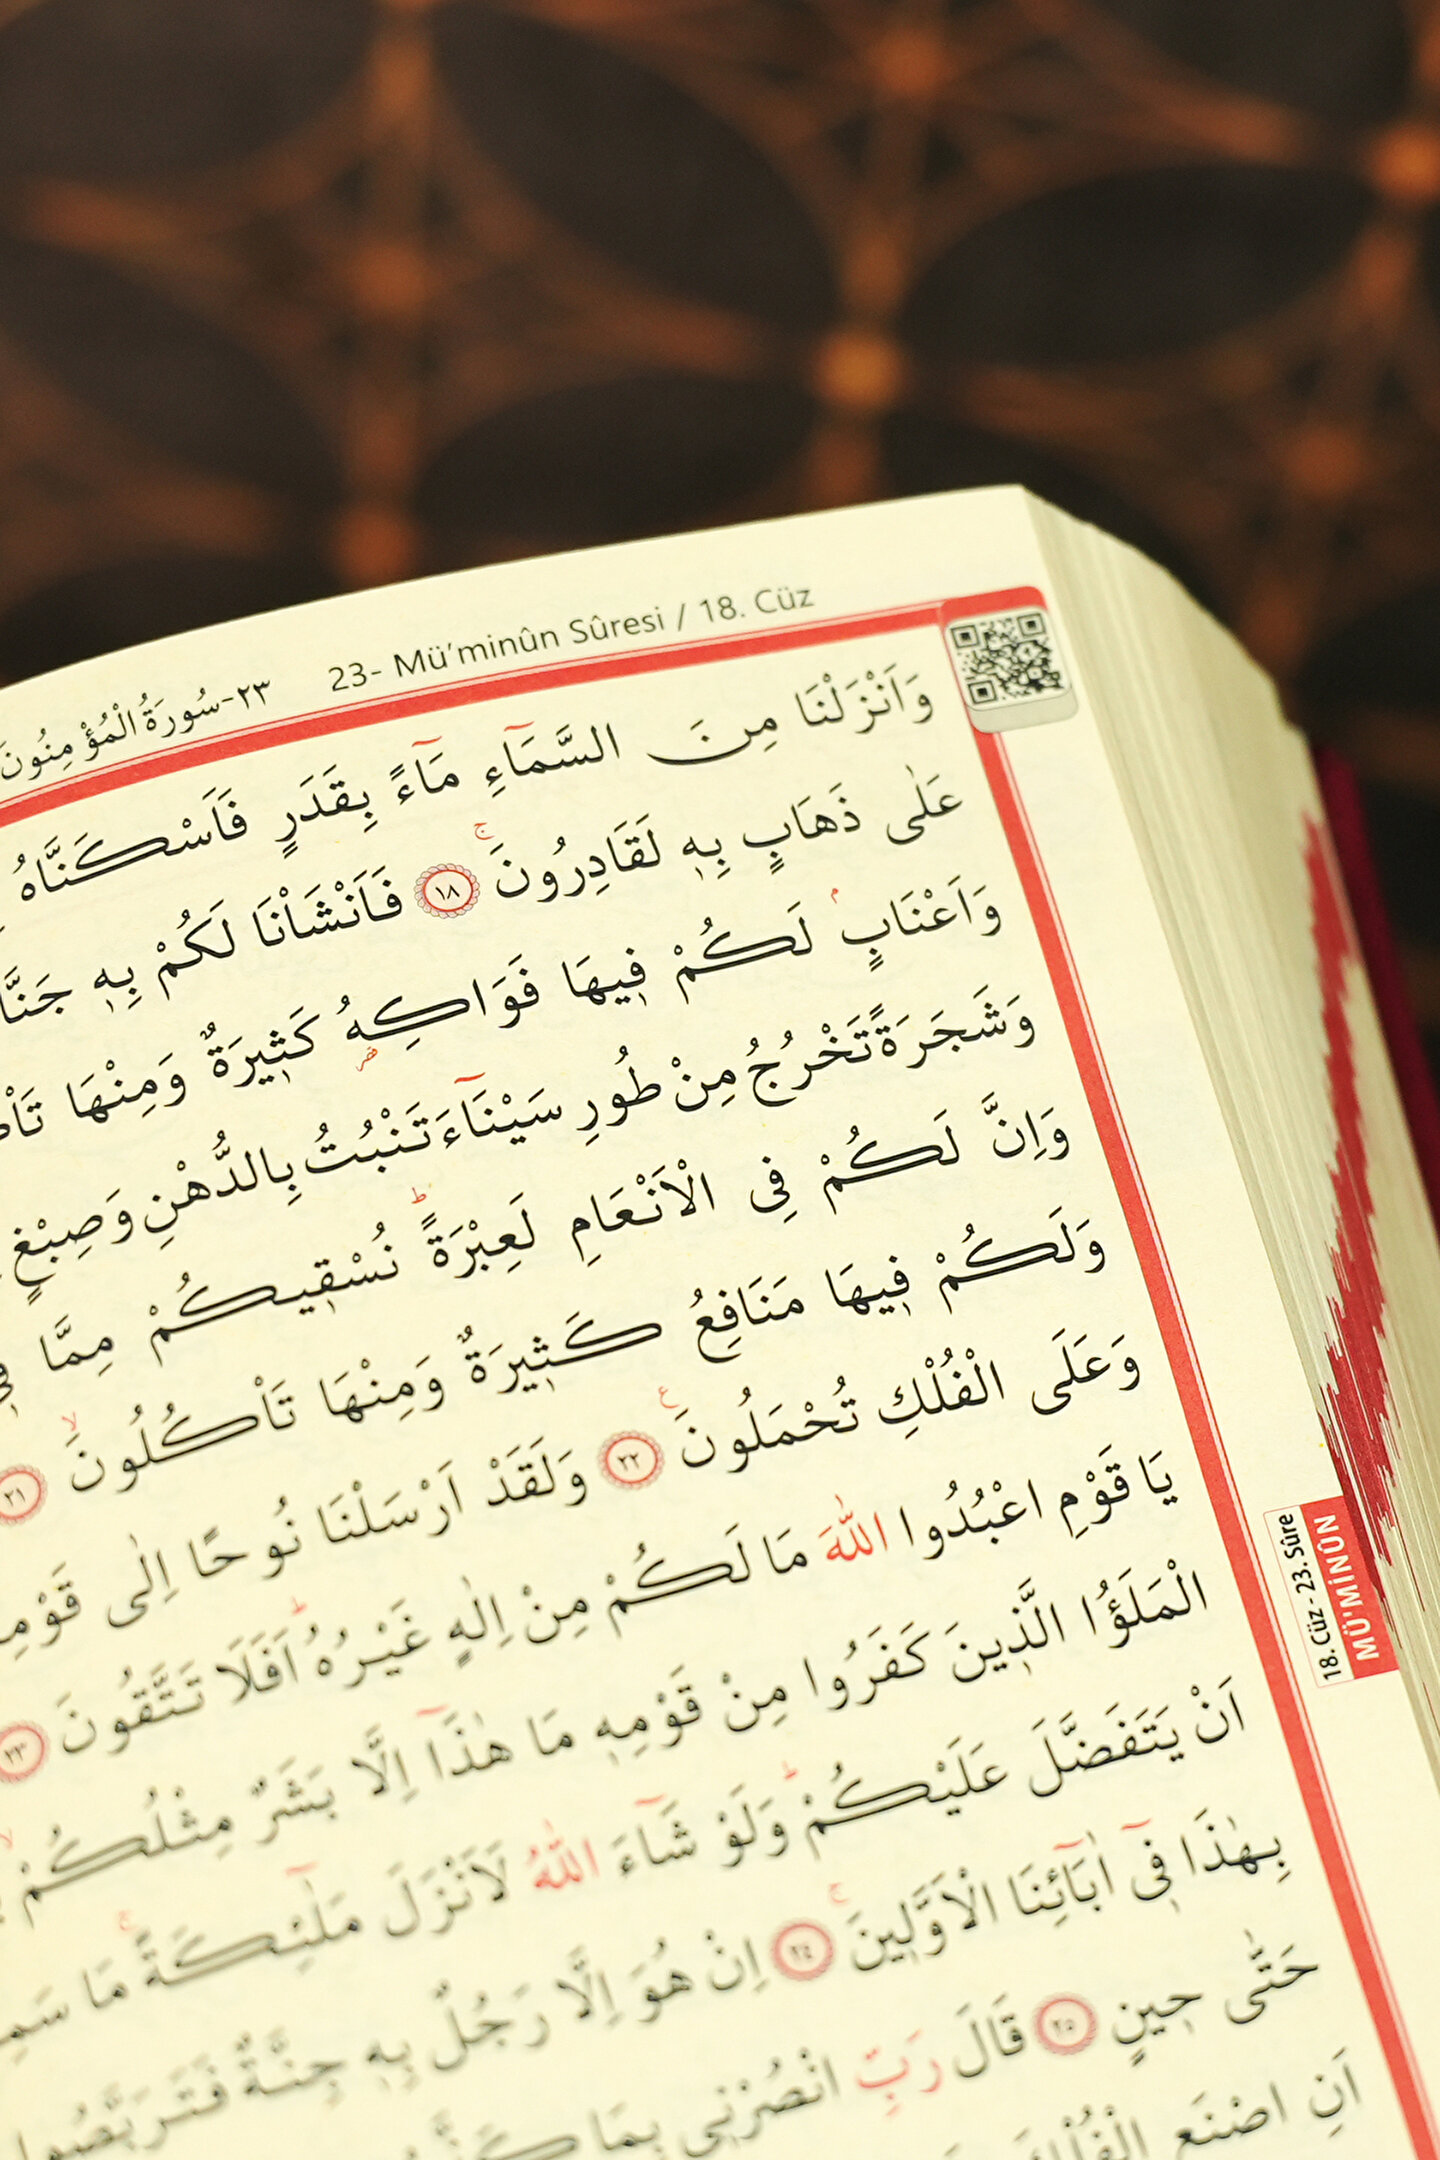 ٢٣-سُورَةُ الْمُؤْمِنُونَ
23- Mü'minûn Sûresi / 18. Cüz
وَاَنْزَلْنَا مِنَ السَّمَٓاءِ مَٓاءً بِقَدَرٍ فَاَسْكَنَّاهُ
عَلٰى ذَهَابٍ بِه۪ لَقَادِرُونَۚ ﴿١٨﴾ فَاَنْشَاْنَا لَكُمْ بِه۪
وَاَعْنَابٍۢ لَكُمْ ف۪يهَا فَوَاكِهُ كَث۪يرَةٌ وَمِنْهَا
وَشَجَرَةً تَخْرُجُ مِنْ طُورِ سَيْنَٓاءَ تَنْبُتُ بِالدُّهْنِ وَصِبْغٍ
وَاِنَّ لَكُمْ فِي الْاَنْعَامِ لَعِبْرَةًۜ نُسْق۪يكُمْ مِمَّا
وَلَكُمْ ف۪يهَا مَنَافِعُ كَث۪يرَةٌ وَمِنْهَا تَاْكُلُونَۙ ﴿٢١﴾
وَعَلَى الْفُلْكِ تُحْمَلُونَ۟ ﴿٢٢﴾ وَلَقَدْ اَرْسَلْنَا نُوحًا اِلٰى
يَا قَوْمِ اعْبُدُوا اللّٰهَ مَا لَكُمْ مِنْ اِلٰهٍ غَيْرُهُۜ اَفَلَا تَتَّقُونَ ﴿٢٣﴾
الْمَلَؤُا الَّذ۪ينَ كَفَرُوا مِنْ قَوْمِه۪ مَا هٰذَٓا اِلَّا بَشَرٌ مِثْلُكُمْۙ
اَنْ يَتَفَضَّلَ عَلَيْكُمْۜ وَلَوْ شَٓاءَ اللّٰهُ لَاَنْزَلَ مَلٰٓئِكَةًۚ مَا
بِهٰذَا ف۪ٓي اٰبَٓائِنَا الْاَوَّل۪ينَۚ ﴿٢٤﴾ اِنْ هُوَ اِلَّا رَجُلٌ بِه۪ جِنَّةٌ فَتَرَبَّصُوا
حَتّٰى ح۪ينٍ ﴿٢٥﴾ قَالَ رَبِّ انْصُرْن۪ي بِمَا
اَنِ اصْنَعِ الْفُلْكَ
18. Cüz - 23. Sûre
MÜ'MİNÛN